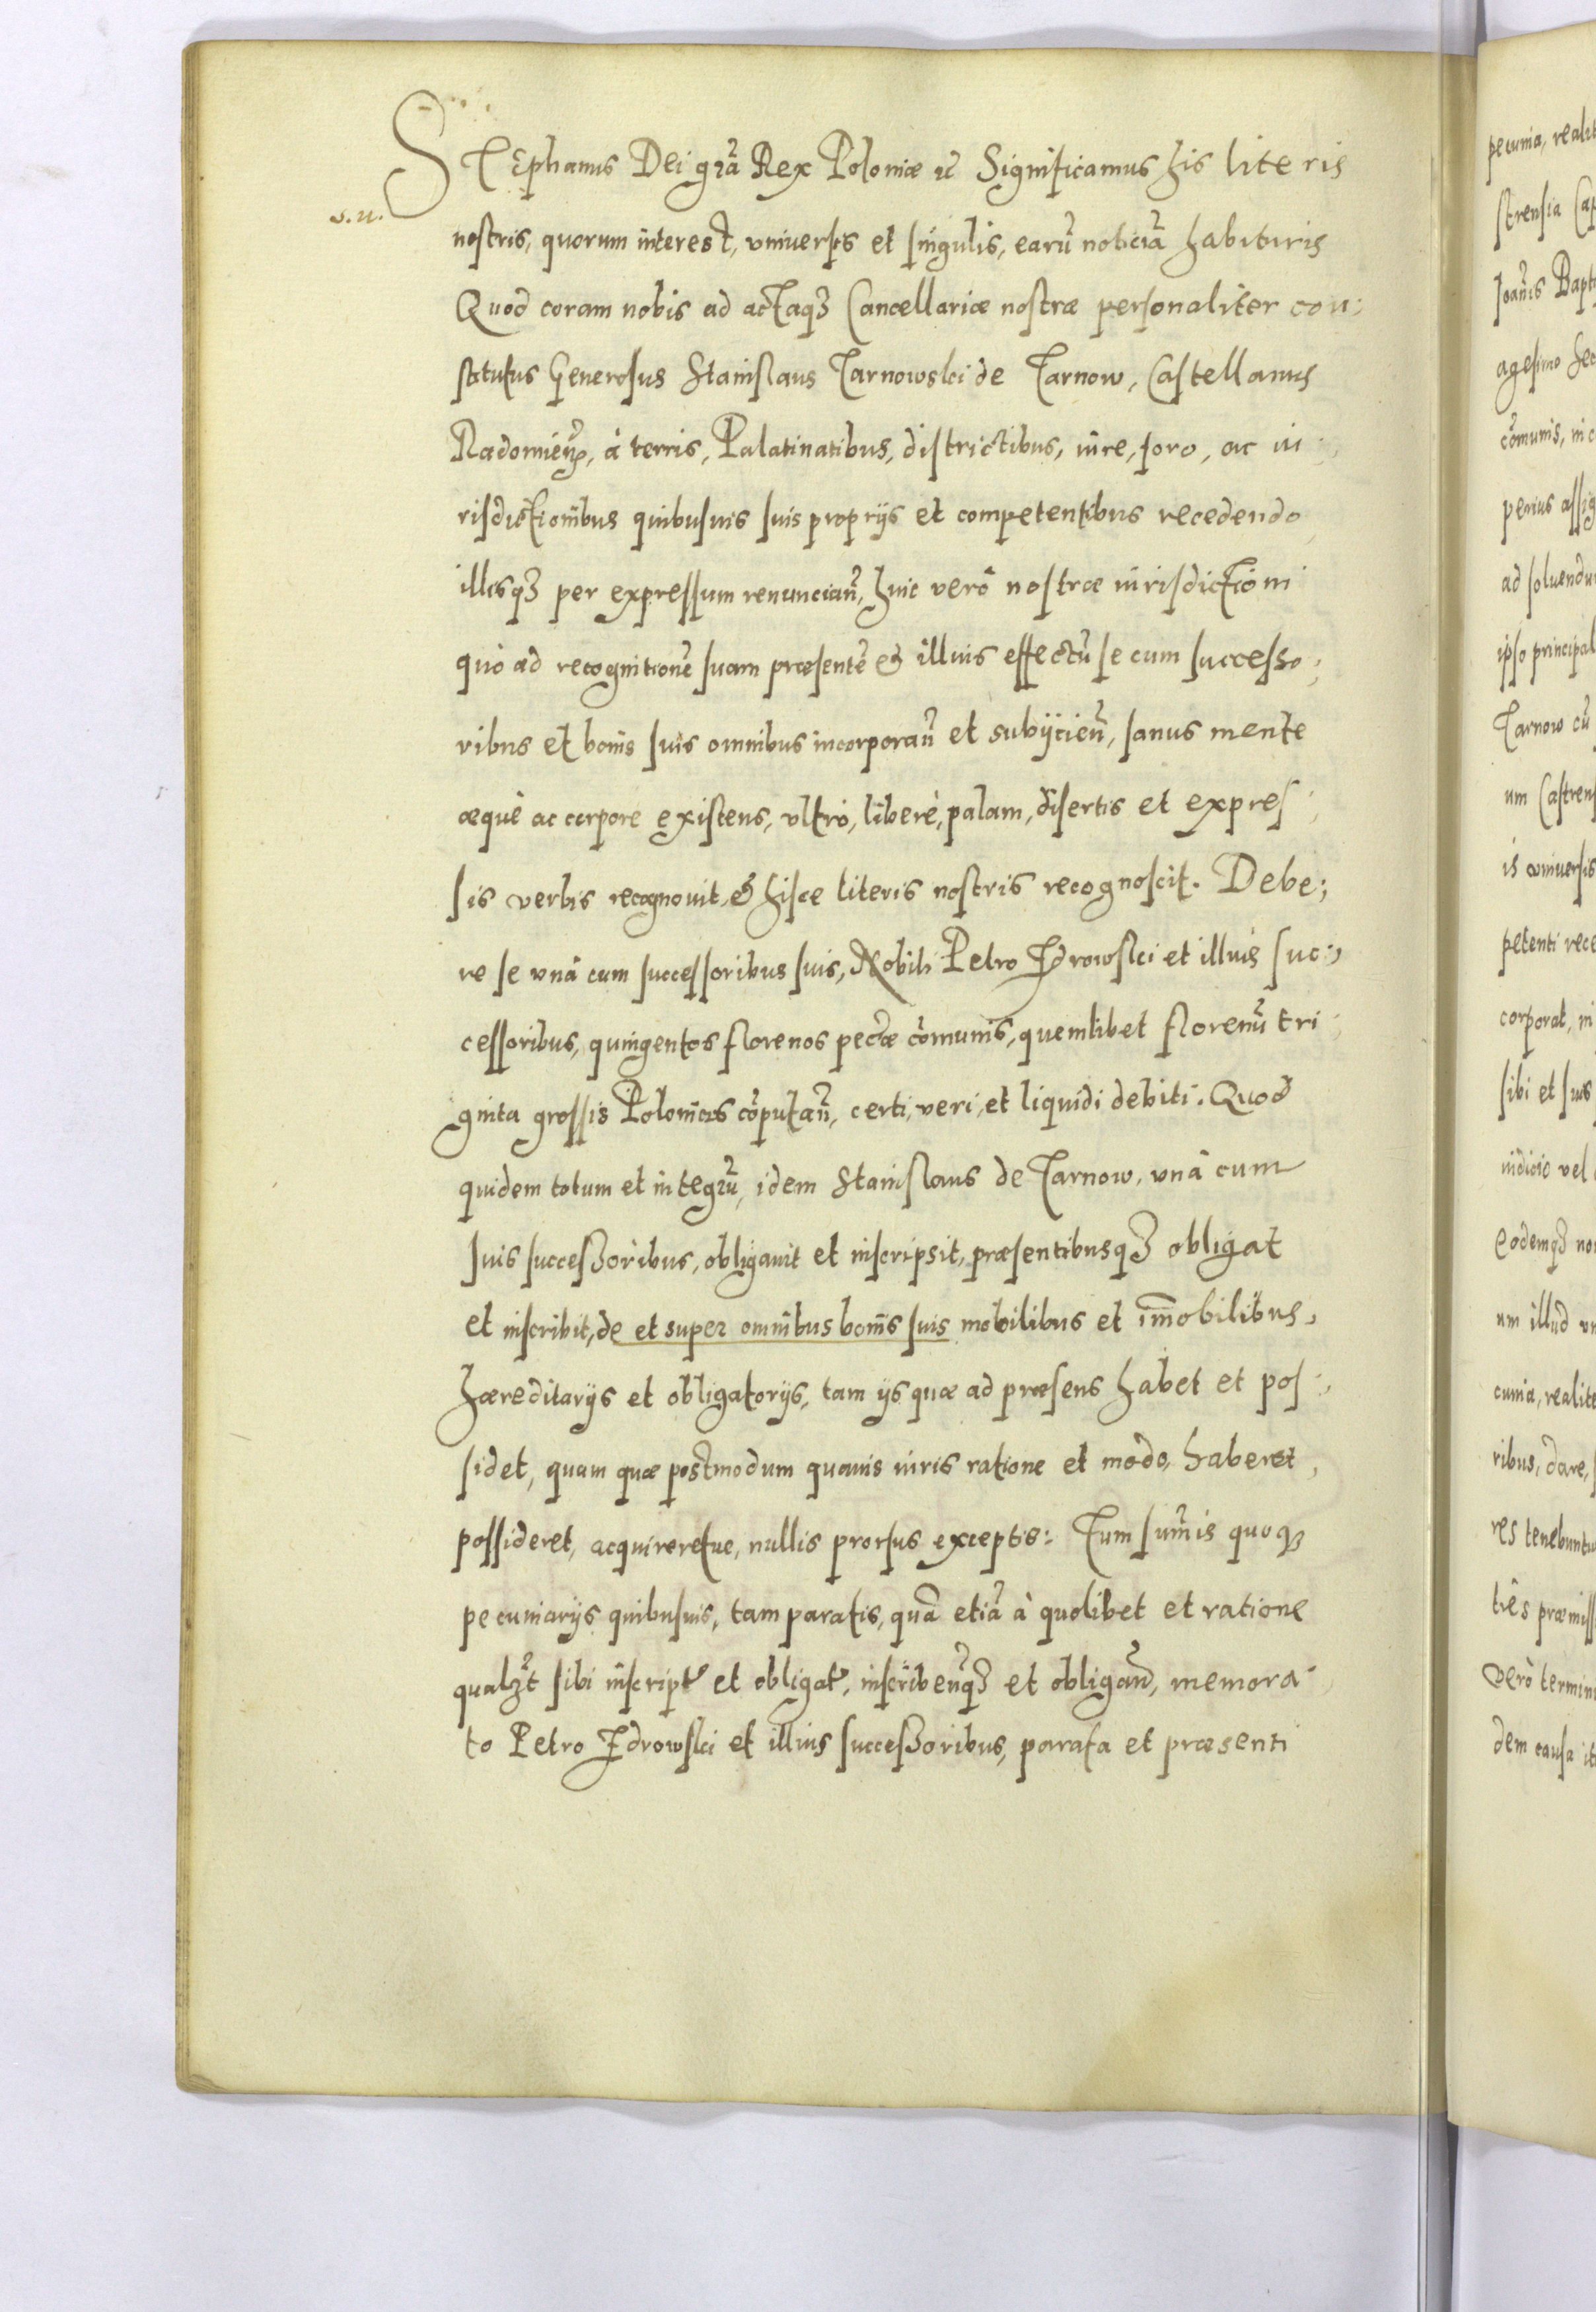 STEphanus Dei grã Rex Poloniæ ꝛc Significamus his literis
s.n.
nostris, quorum interest, vniuersis et singulis, earũ noticiã habituris
Quod coram nobis ad actaqꝫ Cancellariæ nostræ personaliter con:
stitutus Generosus Stanislaus Tarnowski de Tarnow, Castellanus
Radomieñ, à terris, Palatinatibus, districtibus, iure, foro, ac iu:
risdictionibus quibusuis suis proprijs et competentibus recedendo
illisqꝫ per expressum renunciañ, huic verò nostræ iurisdictioni
quò ad recognitionẽ suam præsentẽ & illius effectũ se cum successo:
ribus et bonis suis omnibus incorporañ et subijcieñ, sanus mente
æquè ac corpore existens, vltrò, liberè, palam, disertis et expres:
sis verbis recognouit, & hisce literis nostris recognoscit. Debe:
re se vnà cum successoribus suis, Nobili Petro Zdrowski et illius suc:
cessoribus, quingentos florenos pecũæ cõmunis, quemlibet florenũ tri:
ginta grossis Polonicis cõputañ, certi, veri, et liquidi debiti. Quod
quidem totum et integrũ, idem Stanislaus de Tarnow, vnà cum
suis successoribus, obligauit et inscripsit, præsentibusqꝫ obligat
et inscribit, de et super omnibus bonis suis mobilibus et im̃obilibus,
hæreditarijs et obligatorijs, tam ijs quæ ad præsens habet et pos:
sidet, quam quæ postmodum quauis iuris ratione et modo, haberet,
possideret, acquireretue, nullis prorsus exceptis: Tum sum̃is quoqꝫ
pecuniarijs quibusuis, tam paratis, quã etiã à quolibet et ratione
qualꝫt sibi inscript et obligat, inscribeñqꝫ et obligañ, memora:
to Petro Zdrowski et illius successoribus, parata et præsenti
pecunia, realit
strensia Cap
Joañis Bapt
agesimo sec
cõmunis, in c
perius assig
ad soluendu
ipso principal
Tarnow cũ
um Castrens
is vniuersis
petenti rece
corporat, in
sibi et suis
iudicio vel
eodemqꝫ no
um illud vn
cunia, realite
ribus, dare,
res tenebuntu
tẽs præmiss
verò termin
dem causa it